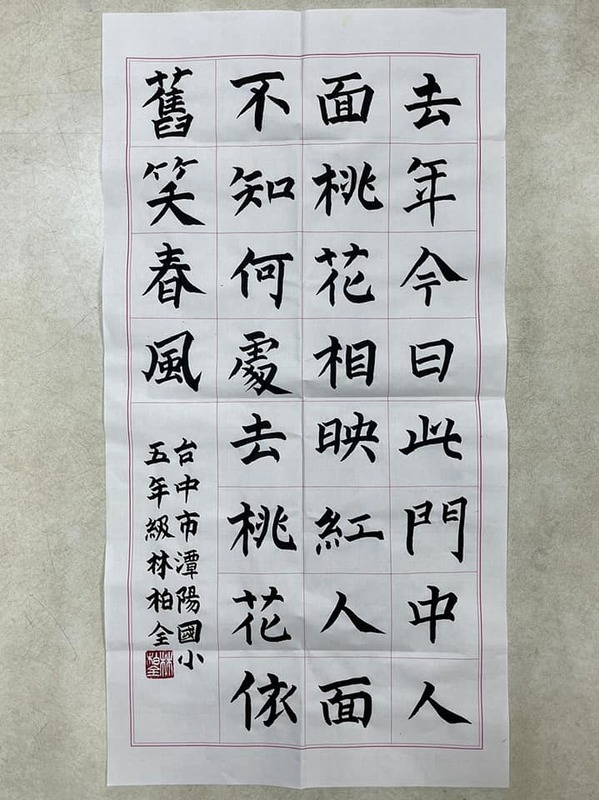 去年今日此門中人
面桃花相映紅人面
不知何處去桃花依
舊笑春風
台中市潭陽國小
五年級林柏全